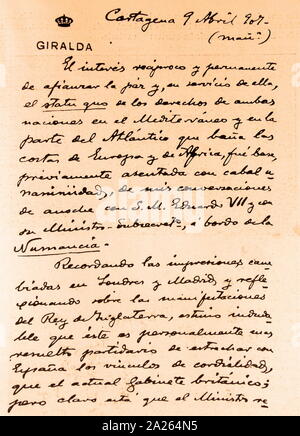 Cartagena 9 Abril 907-
(mañª)
GIRALDA
El interés recíproco y permanente
de afianzar la paz y, en servicio de ella,
el statu quo de los derechos de ambas
naciones en el Mediterráneo y en la
parte del Atlántico que baña las
costas de Europa y de África, fué base,
previamente asentada con cabal u-
nanimidad, de mis conversaciones
de anoche con S. M. Eduardo VII y con
su Ministro a bordo de la
Numancia.-
Recordando las impresiones cam-
biadas en Londres y Madrid y refle-
xionando sobre las manifestaciones
del Rey de Inglaterra, estimo induda-
ble que éste es personalmente más
resuelto partidario de estrechar con
España los vínculos de cordialidad,
que el actual Gabinete británico;
pero claro está que el Ministro re-
alamy
alamy
Image ID: 2A264N5
www.alamy.com